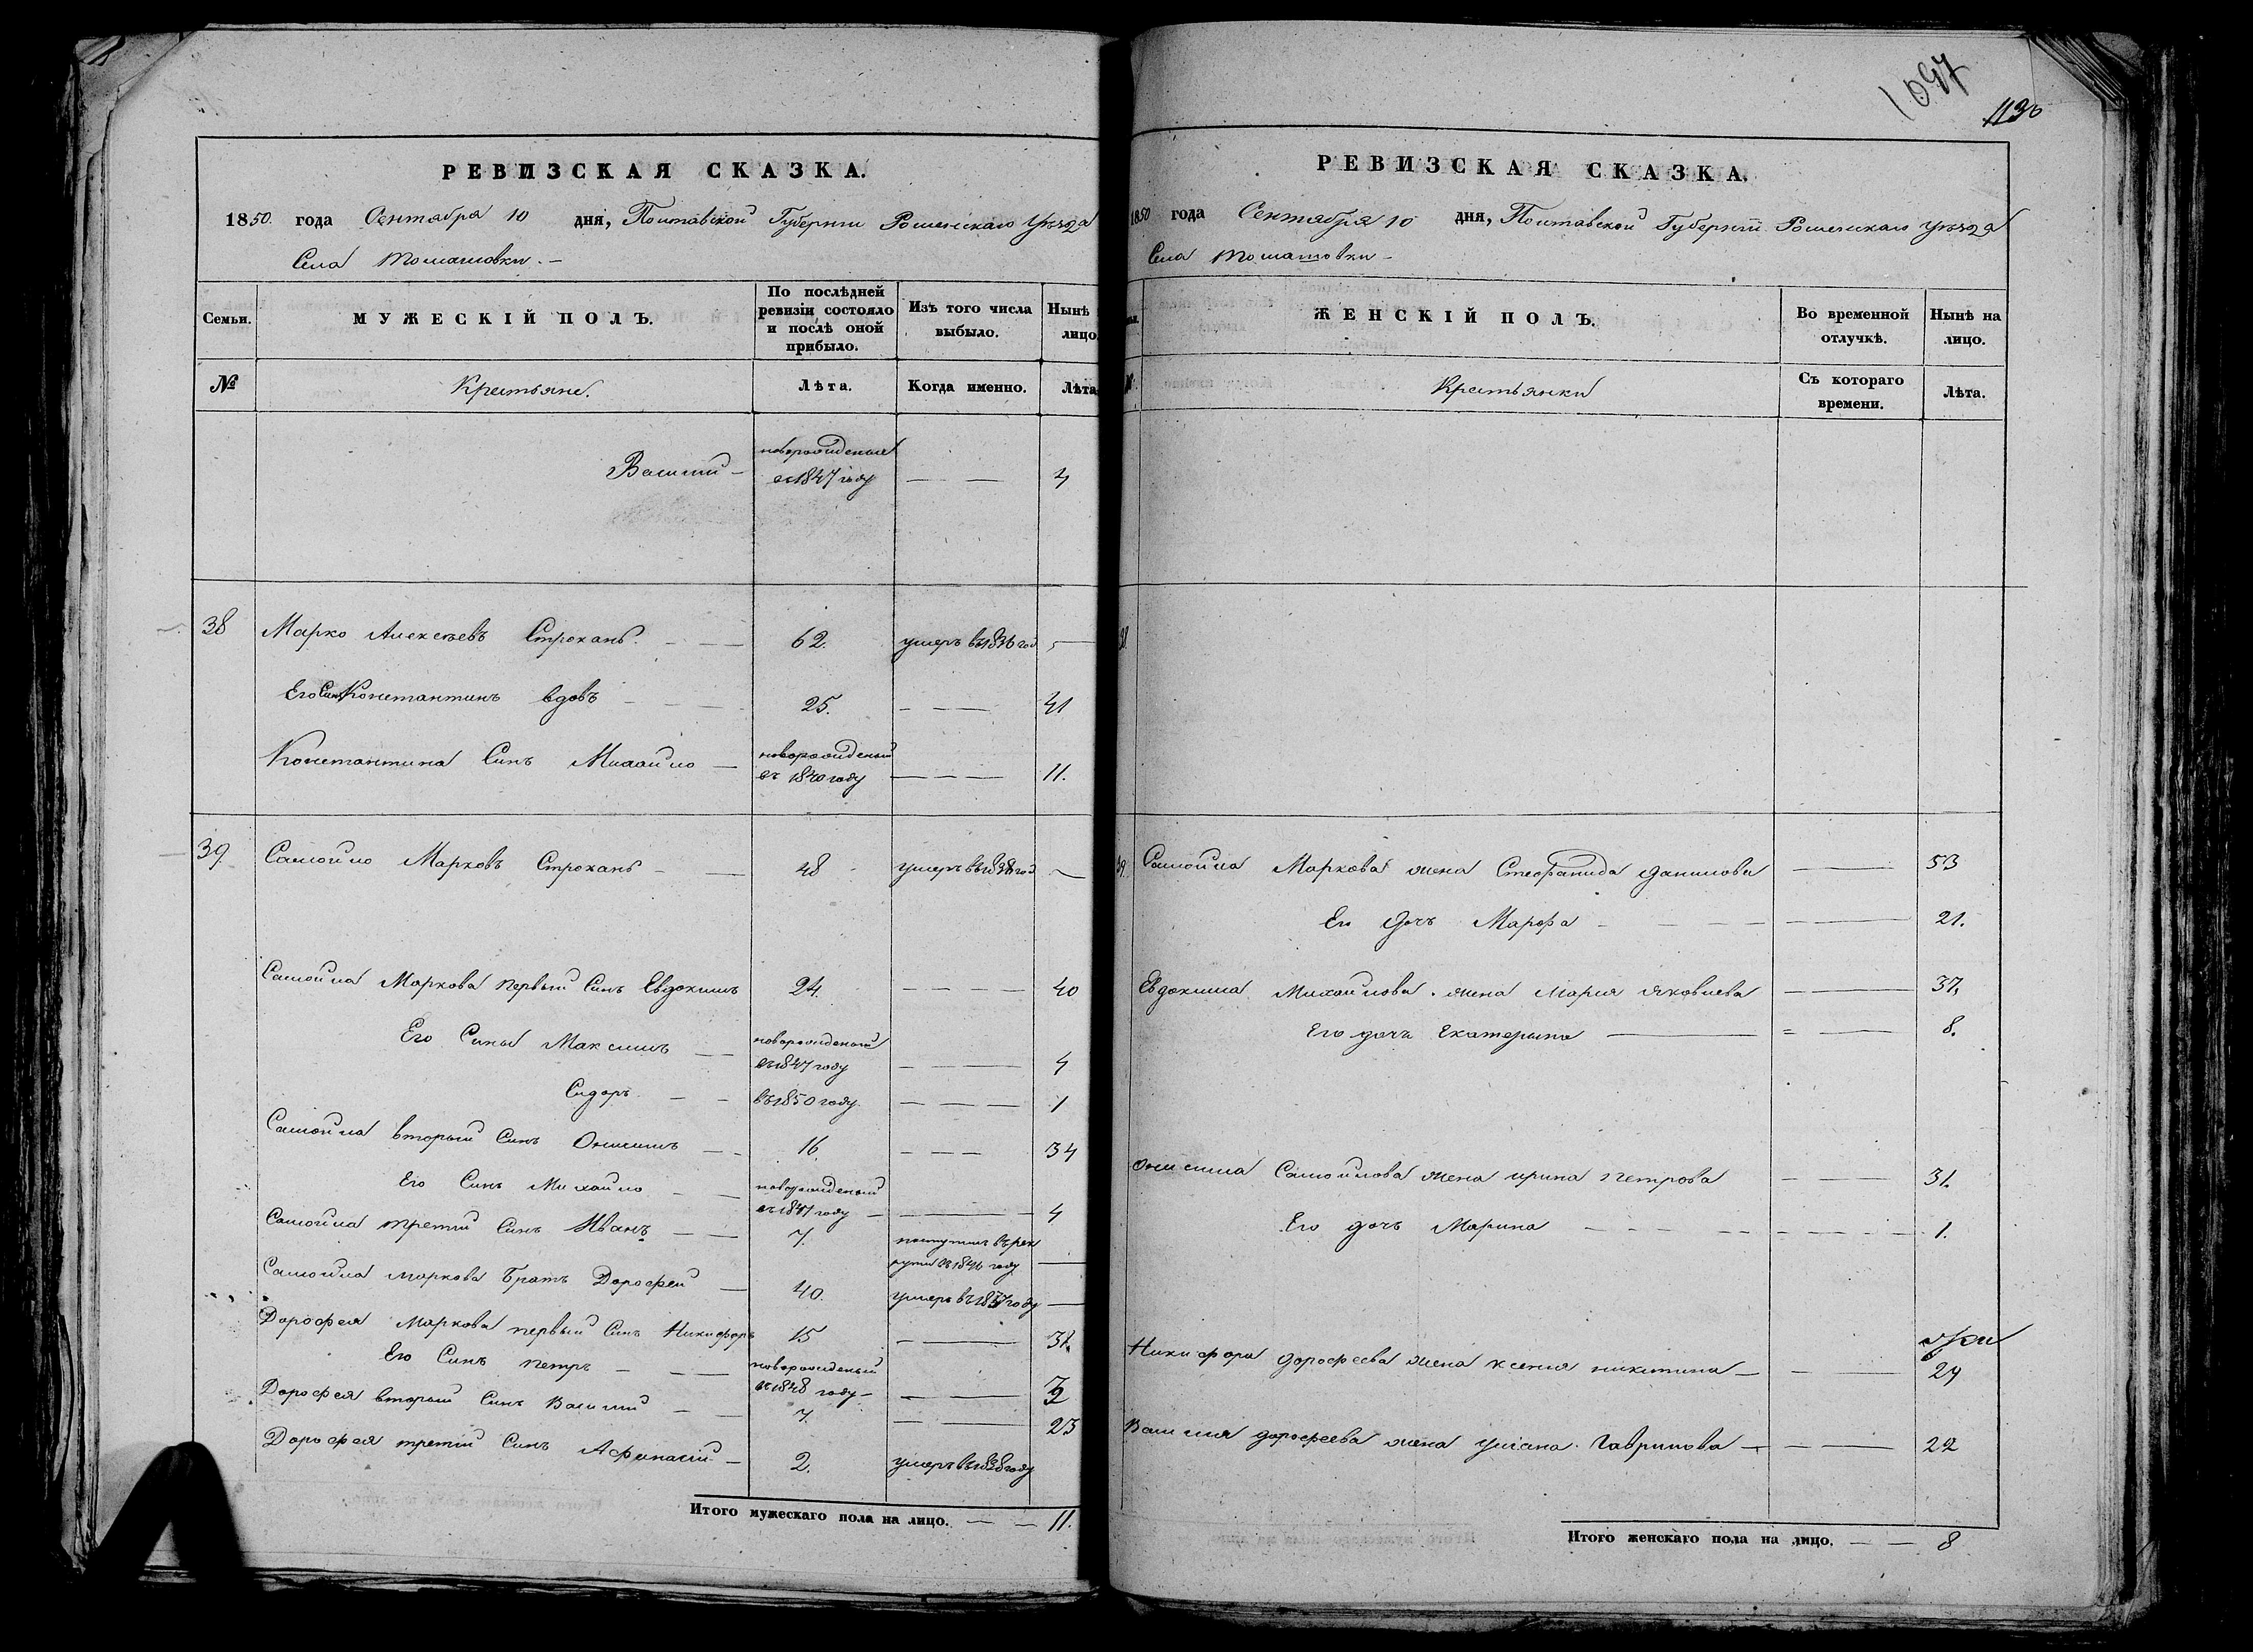 1097
1130
РЕВИЗСКАЯ СКАЗКА.
1850. года Сентября 10 дня, Полтавской Губернии Роменскаго Уѣзда
Села Томашовки. —
Семьи. МУЖЕСКІЙ ПОЛЪ. По послѣдней ревизіи состояло и послѣ оной прибыло. Изъ того числа выбыло. Нынѣ лицо.
№ Крестьяне. Лѣта. Когда именно. Лѣта
Василий — новорожденый въ 1847 году — — 4
38 Марко Алексѣевъ Строкань — — 62. умеръ въ 1836 год —
Его Синъ Константинъ вдовъ — — 25. — — 41
Константина Синъ Михайло — новорожденый въ 1840 году — — — 11.
39 Самойло Марковъ Строкань — — 48 умеръ въ 1838 год —
Самойла Маркова первый Синъ Евдокимъ 24. — — — 40
Его Сины Максимъ — — новорожденый въ 1847 году — — — 4
Сидоръ — — въ 1850 году. — — — 1
Самойла вторый Синъ Онисимъ — — 16. — — — 34
Его Синъ Михайло — — новорожденый въ 1847 году — — 4
Самойла третий Синъ Иванъ — — 7. поступил въ рекруты въ 1846 году —
Самойла Маркова Братъ Дорофей — 40. умеръ въ 1837 году —
Дорофея Маркова первый Синъ Никифоръ 15 — 31.
Его Синъ Петръ — — новорожденый въ 1848 году — —
Дорофея вторый Синъ Василий — — 7. — 23
Дорофея третий Синъ Афанасий — 2. умеръ въ 1838 году
Итого мужескаго пола на лицо. — — 11.
РЕВИЗСКАЯ СКАЗКА.
1850 года Сентября 10 дня, Полтавской Губерніи Роменскаго Уѣзда
Села Томашовки —
ЖЕНСКІЙ ПОЛЪ. Во временной отлучкѣ. Нынѣ на лицо.
Крестьянки Съ котораго времени. Лѣта.
38
39. Самойла Маркова жена Стефанида Данилова — 53
Его дочь Марфа — — — — 21.
Евдокима Михайлова жена Мария Яковлева — 37.
Его дочь Екатерына — — 8.
Онисима Самойлова жена Ирина Петрова — — 31.
Его дочь Марина — — — — 1.
Никифора Дорофеева жена Ксения Никитина — — — 29
Василия Дорофеева жена Улиана Гаврилова — — — 22
Итого женскаго пола на лицо. — — 8